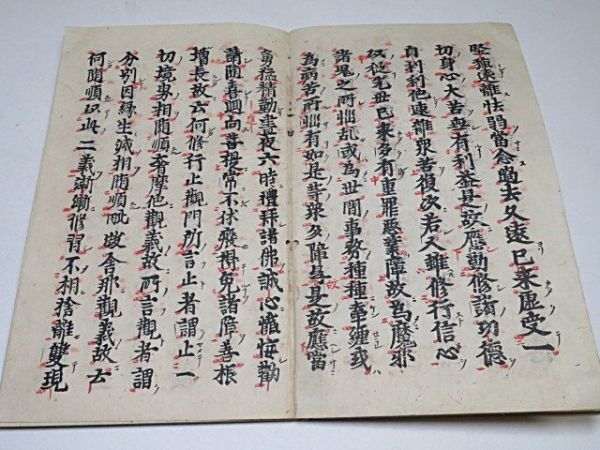 堅强遠離怯弱當念過去久遠已來虛受一
切身心大苦無有利益是故應勤修諸功德
自利利他速離眾苦復次若人雖修行信心
以從先世已來多有重罪惡業障故為魔邪
諸鬼之所惱亂或為世間事務種種牽纏或
為病苦所惱有如是等眾多障㝵是故應當
勇猛精勤晝夜六時禮拜諸佛誠心懺悔勸
請隨喜迴向菩提常不休廢得免諸障善根
增長故云何修行止觀門所言止者謂止一
切境界相隨順奢摩他觀義故所言觀者謂
分別因緣生滅相隨順毗鉢舍那觀義故云
何隨順以此二義漸漸修習不相捨離雙現